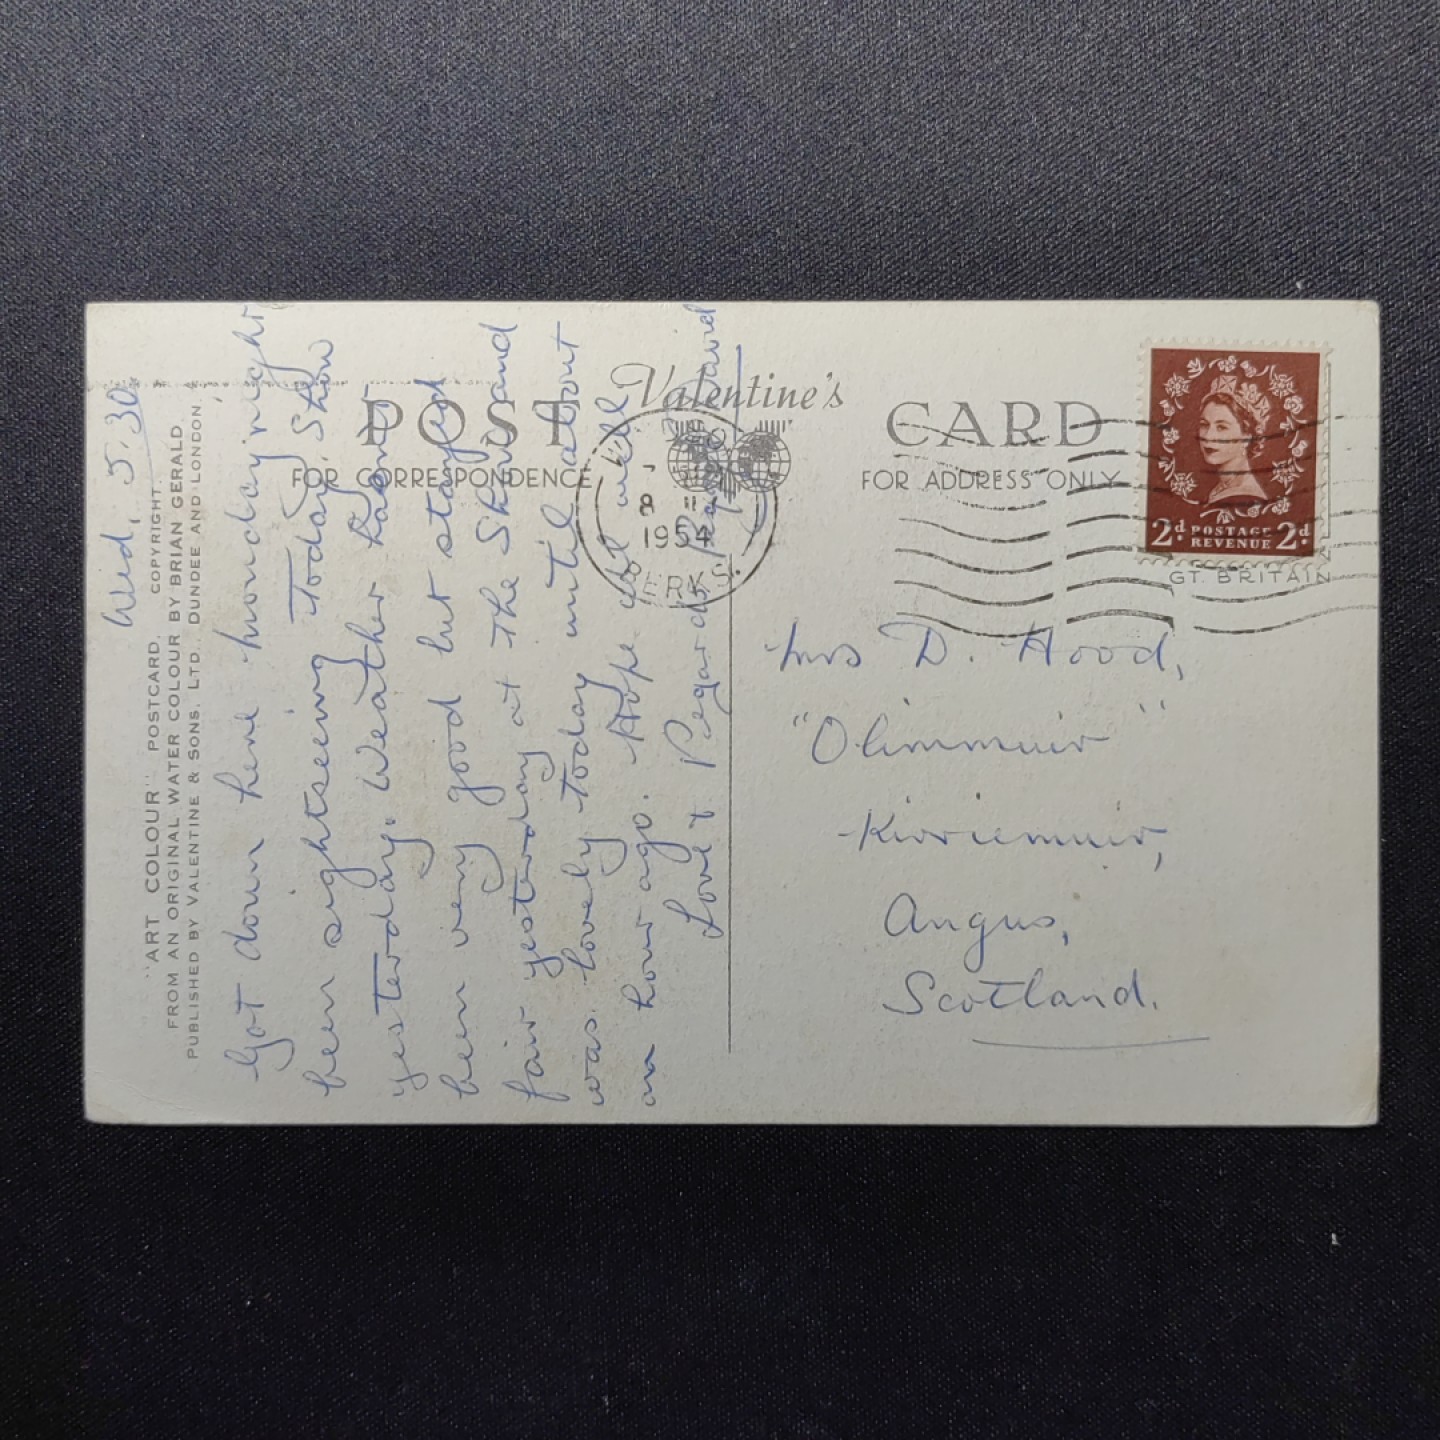 "ART COLOUR" POSTCARD. COPYRIGHT.
FROM AN ORIGINAL WATER COLOUR BY BRIAN GERALD.
PUBLISHED BY VALENTINE & SONS, LTD. DUNDEE AND LONDON.
Wed, 5.30
Got down here Monday night
been sightseeing Today. Show
yesterday. Weather has
been very good but stayed
fair yesterday at the Show and
was lovely today until about
an hour ago. Hope all well
Love & Regards
Valentine's
POST CARD
FOR CORRESPONDENCE
FOR ADDRESS ONLY
8
1954
ERKS.
2d POSTAGE REVENUE 2d
GT. BRITAIN
Mrs D. Hood,
"Olimmuir"
Kirriemuir,
Angus,
Scotland.